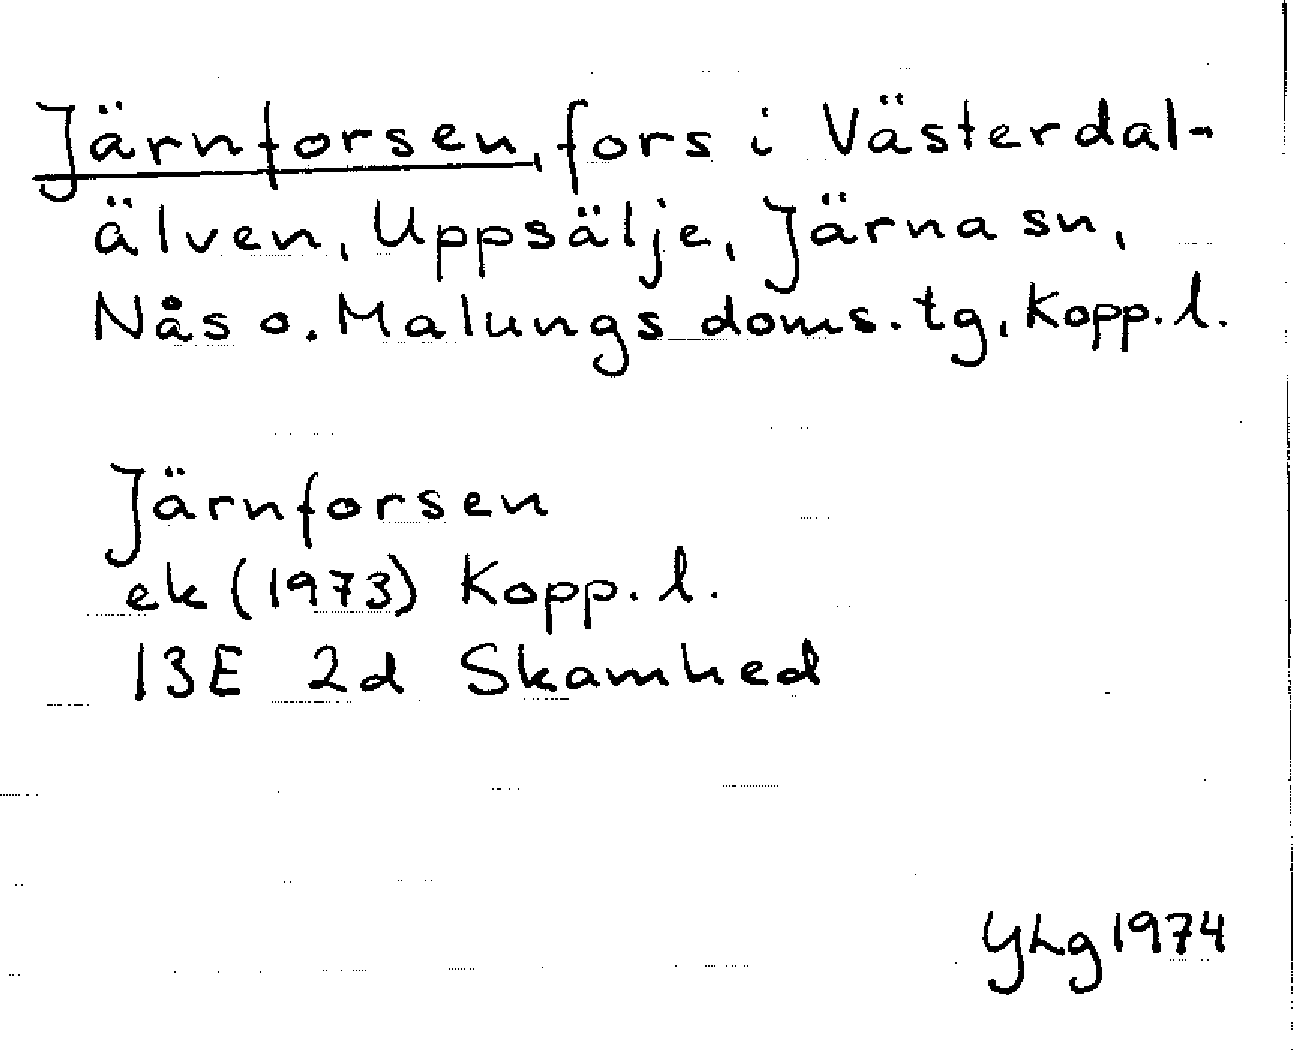 Järnforsen, fors i Västerdal-
älven, Uppsälje, Järna sn,
Nås o. Malungs doms. tg, Kopp. l.
Järnforsen
ek (1973) Kopp. l.
13E 2d Skamhed
YLg 1974